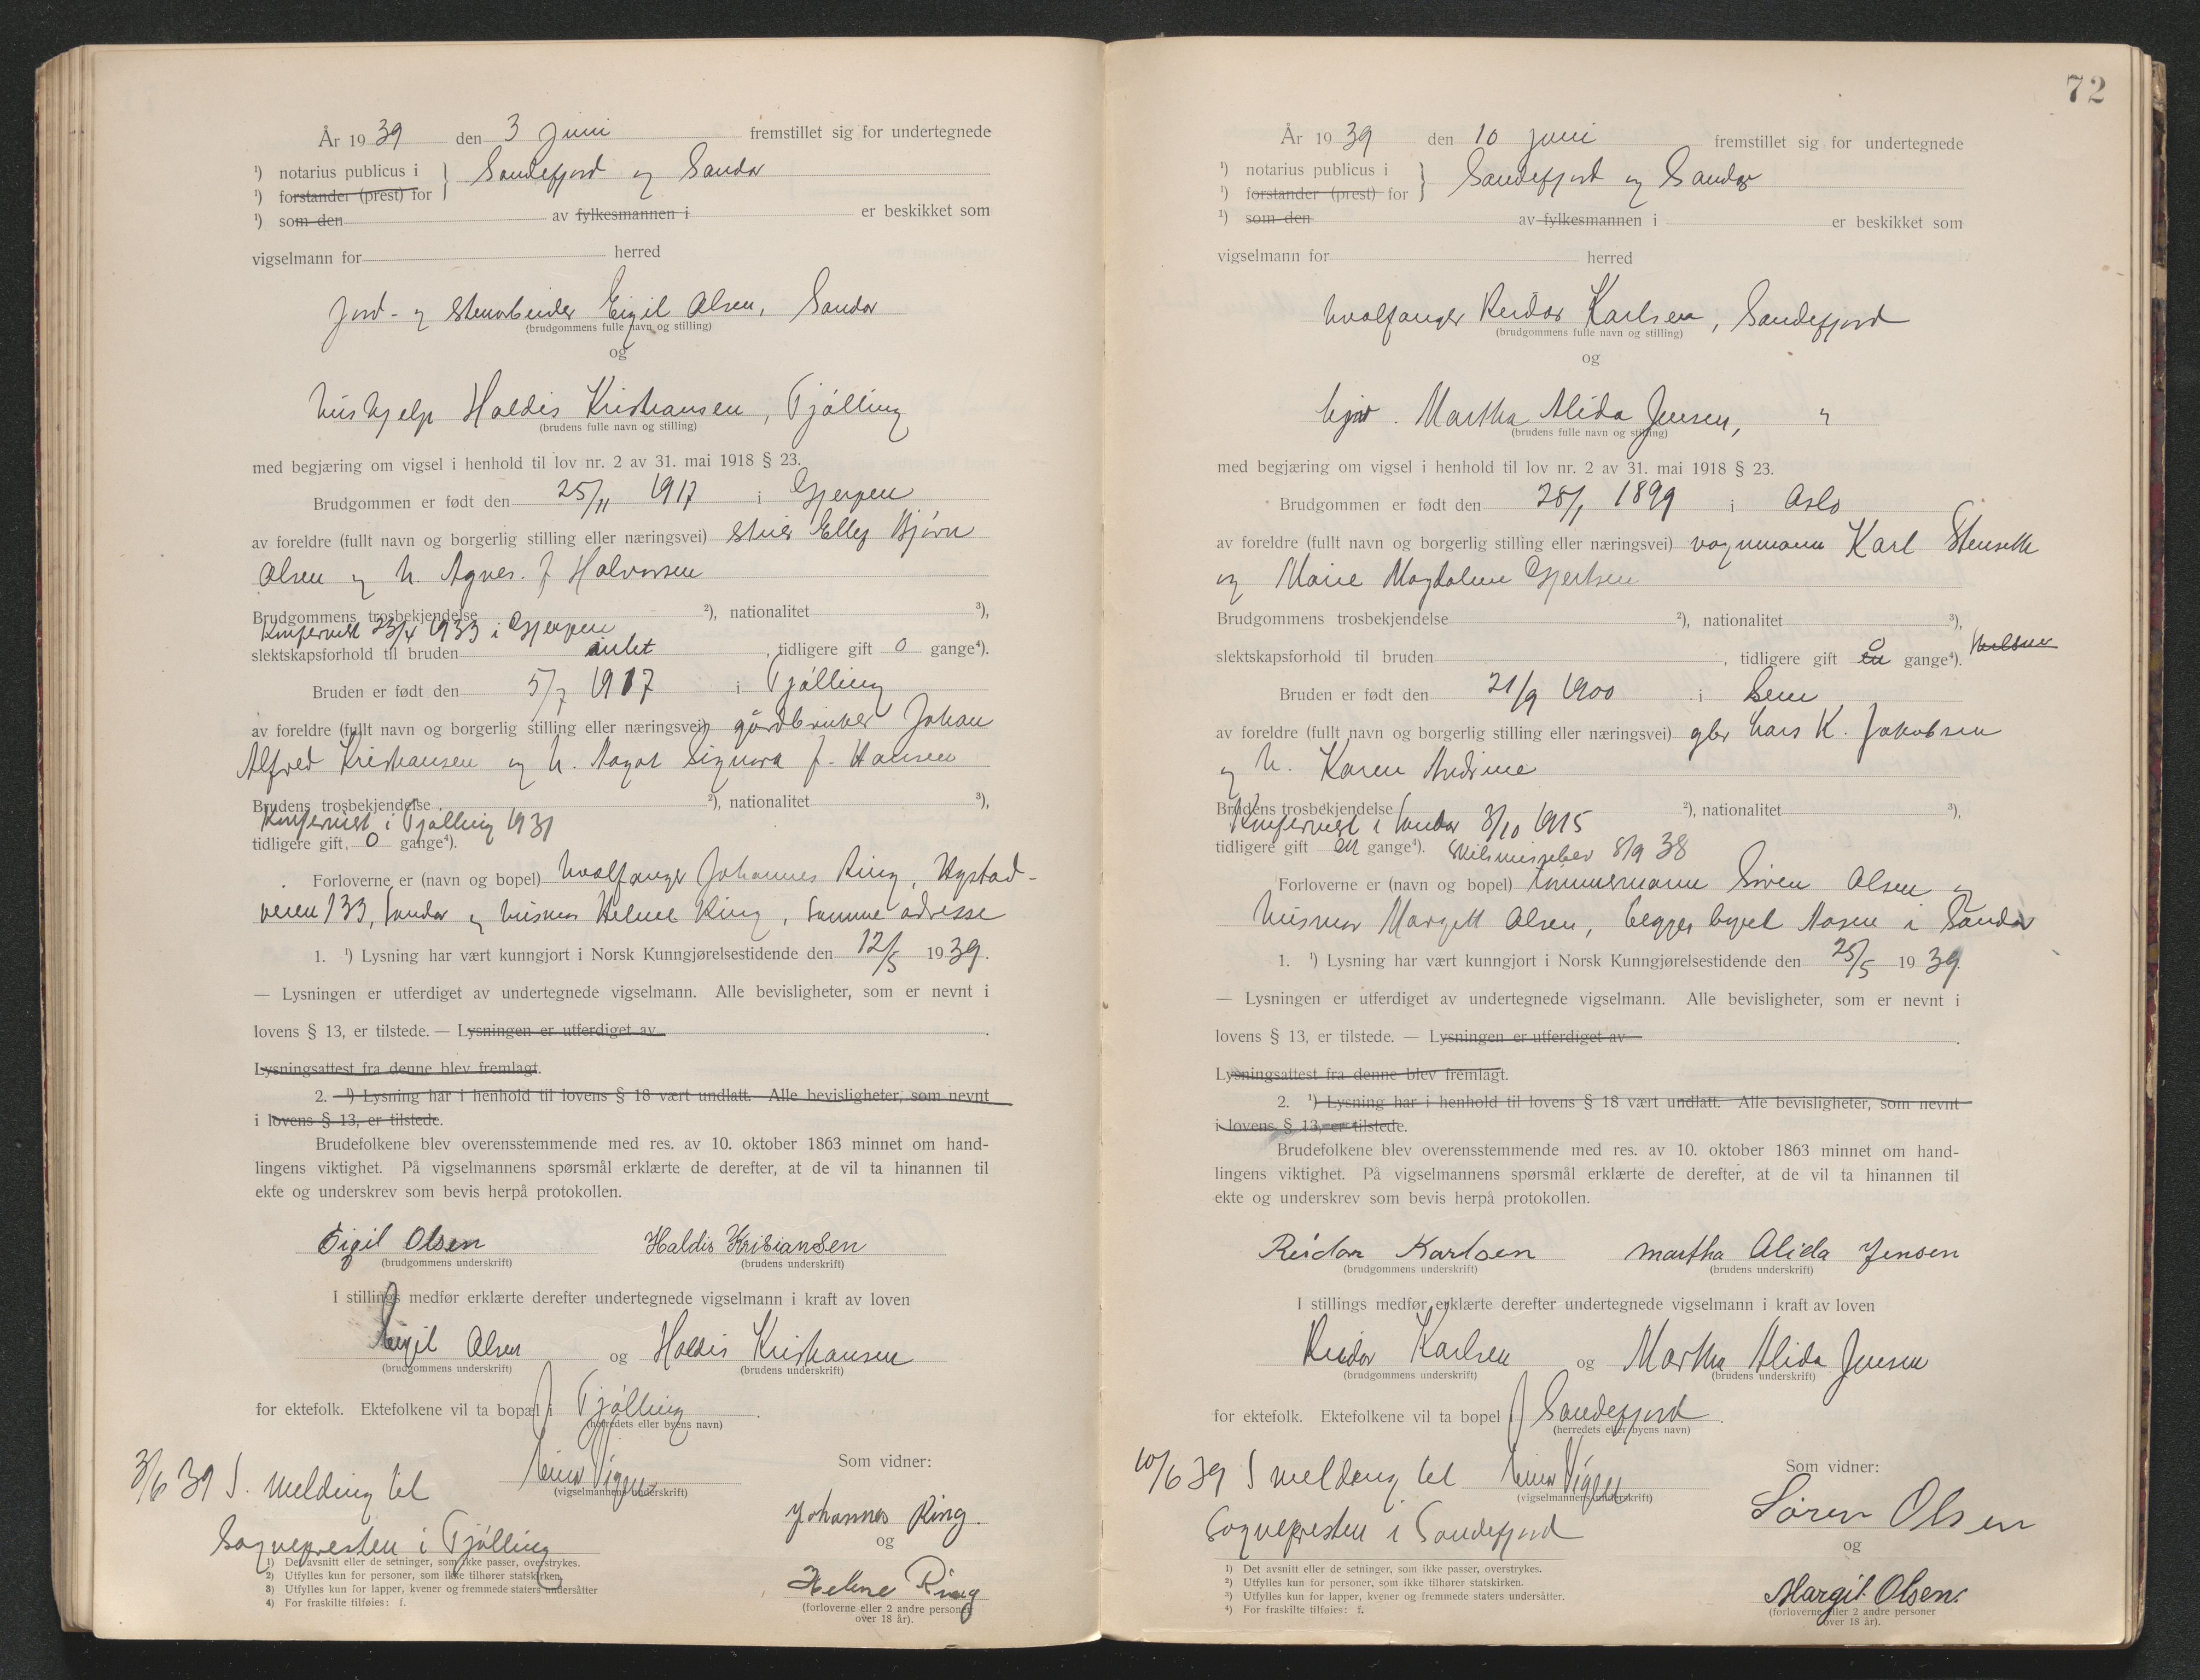 År 1939 den 3 juni fremstillet sig for undertegnede
¹) notarius publicus i
¹) forstander (prest) for } Sandefjord og Sandar
¹) som den av fylkesmannen i er beskikket som
vigselmann for herred
jord- og stenarbeider Eigil Olsen, Sandar
(brudgommens fulle navn og stilling)
og
hushjelp Haldis Kristiansen, Tjølling
(brudens fulle navn og stilling)
med begjæring om vigsel i henhold til lov nr. 2 av 31. mai 1918 § 23.
Brudgommen er født den 25/11 1917 i Gjerpen
av foreldre (fullt navn og borgerlig stilling eller næringsvei) Ellef Bjørn
Olsen og h. Agnes f. Halvorsen
Brudgommens trosbekjendelse ²), nationalitet ³),
Konfirmert 23/4 1933 i Gjerpen
slektskapsforhold til bruden intet, tidligere gift 0 gange⁴).
Bruden er født den 5/7 1917 i Tjølling
av foreldre (fullt navn og borgerlig stilling eller næringsvei) gårdbruker Johan
Alfred Kristiansen og h. Aagot Signora f. Hansen
Brudens trosbekjendelse ²), nationalitet ³),
Konfirmert i Tjølling 1931
tidligere gift 0 gange⁴).
Forloverne er (navn og bopel) hvalfanger Johannes Ring, Nystad-
veien 133, Sandar og husmor Helene Ring, samme adresse
1. ¹) Lysning har vært kunngjort i Norsk Kunngjørelsestidende den 12/5 1939.
— Lysningen er utferdiget av undertegnede vigselmann. Alle bevisligheter, som er nevnt i
lovens § 13, er tilstede. — Lysningen er utferdiget av .
Lysningsattest fra denne blev fremlagt.
2. ¹) Lysning har i henhold til lovens § 18 vært undlatt. Alle bevisligheter, som nevnt
i lovens § 13, er tilstede.
Brudefolkene blev overensstemmende med res. av 10. oktober 1863 minnet om hand-
lingens viktighet. På vigselmannens spørsmål erklærte de derefter, at de vil ta hinannen til
ekte og underskrev som bevis herpå protokollen.
Eigil Olsen Haldis Krisiansen
(brudgommens underskrift) (brudens underskrift)
I stillings medfør erklærte derefter undertegnede vigselmann i kraft av loven
Eigil Olsen og Haldis Kristiansen
(brudgommens underskrift) (brudens underskrift)
for ektefolk. Ektefolkene vil ta bopæl i Tjølling .
(herredets eller byens navn)
3/6 39 S. melding til
(vigselmannens underskrift)
Som vidner:
Sognepresten i Tjølling
Johannes Ring.
og
Helene Ring
(forloverne eller 2 andre personer
over 18 år).
1) Det avsnitt eller de setninger, som ikke passer, overstrykes.
2) Utfylles kun for personer, som ikke tilhører statskirken.
3) Utfylles kun for lapper, kvener og fremmede staters undersåtter
4) For fraskilte tilføies: f.
72
År 1939 den 10 juni fremstillet sig for undertegnede
¹) notarius publicus i
¹) forstander (prest) for } Sandefjord og Sandar
¹) som den av fylkesmannen i er beskikket som
vigselmann for herred
hvalfanger Reidar Karlsen, Sandefjord
(brudgommens fulle navn og stilling)
og
Martha Alida Jensen, "
(brudens fulle navn og stilling)
med begjæring om vigsel i henhold til lov nr. 2 av 31. mai 1918 § 23.
Brudgommen er født den 28/1 1899 i Oslo
av foreldre (fullt navn og borgerlig stilling eller næringsvei) vognmann Karl Stenseth
og Marie Magdalene Gjertsen
Brudgommens trosbekjendelse ²), nationalitet ³),
slektskapsforhold til bruden , tidligere gift 0 en gange⁴).
Bruden er født den 21/9 1900 i Sem
av foreldre (fullt navn og borgerlig stilling eller næringsvei) gbr Lars K. Jakobsen
og h. Karen Andrine
Brudens trosbekjendelse ²), nationalitet ³),
Konfirmert i Sandar 3/10 1915
tidligere gift en gange⁴). 8/9 38
Forloverne er (navn og bopel) tømmermann Søren Olsen og
husmor Margitt Olsen, begges bopel Aasen i Sandar
1. ¹) Lysning har vært kunngjort i Norsk Kunngjørelsestidende den 25/5 1939.
— Lysningen er utferdiget av undertegnede vigselmann. Alle bevisligheter, som er nevnt i
lovens § 13, er tilstede. — Lysningen er utferdiget av .
Lysningsattest fra denne blev fremlagt.
2. ¹) Lysning har i henhold til lovens § 18 vært undlatt. Alle bevisligheter, som nevnt
i lovens § 13, er tilstede.
Brudefolkene blev overensstemmende med res. av 10. oktober 1863 minnet om hand-
lingens viktighet. På vigselmannens spørsmål erklærte de derefter, at de vil ta hinannen til
ekte og underskrev som bevis herpå protokollen.
Reidar Karlsen Martha Alida Jensen
(brudgommens underskrift) (brudens underskrift)
I stillings medfør erklærte derefter undertegnede vigselmann i kraft av loven
Reidar Karlsen og Martha Alida Jensen
(brudgommens underskrift) (brudens underskrift)
for ektefolk. Ektefolkene vil ta bopel i Sandefjord .
(herredets eller byens navn)
10/6 39 S melding til
(vigselmannens underskrift)
Som vidner:
Sognepresten i Sandefjord
Søren Olsen
og
Margit Olsen.
(forloverne eller 2 andre personer
over 18 år).
¹) Det avsnitt eller de setninger, som ikke passer, overstrykes.
²) Utfylles kun for personer, som ikke tilhører statskirken.
³) Utfylles kun for lapper, kvener og fremmede staters undersåtter.
⁴) For fraskilte tilføies: f.